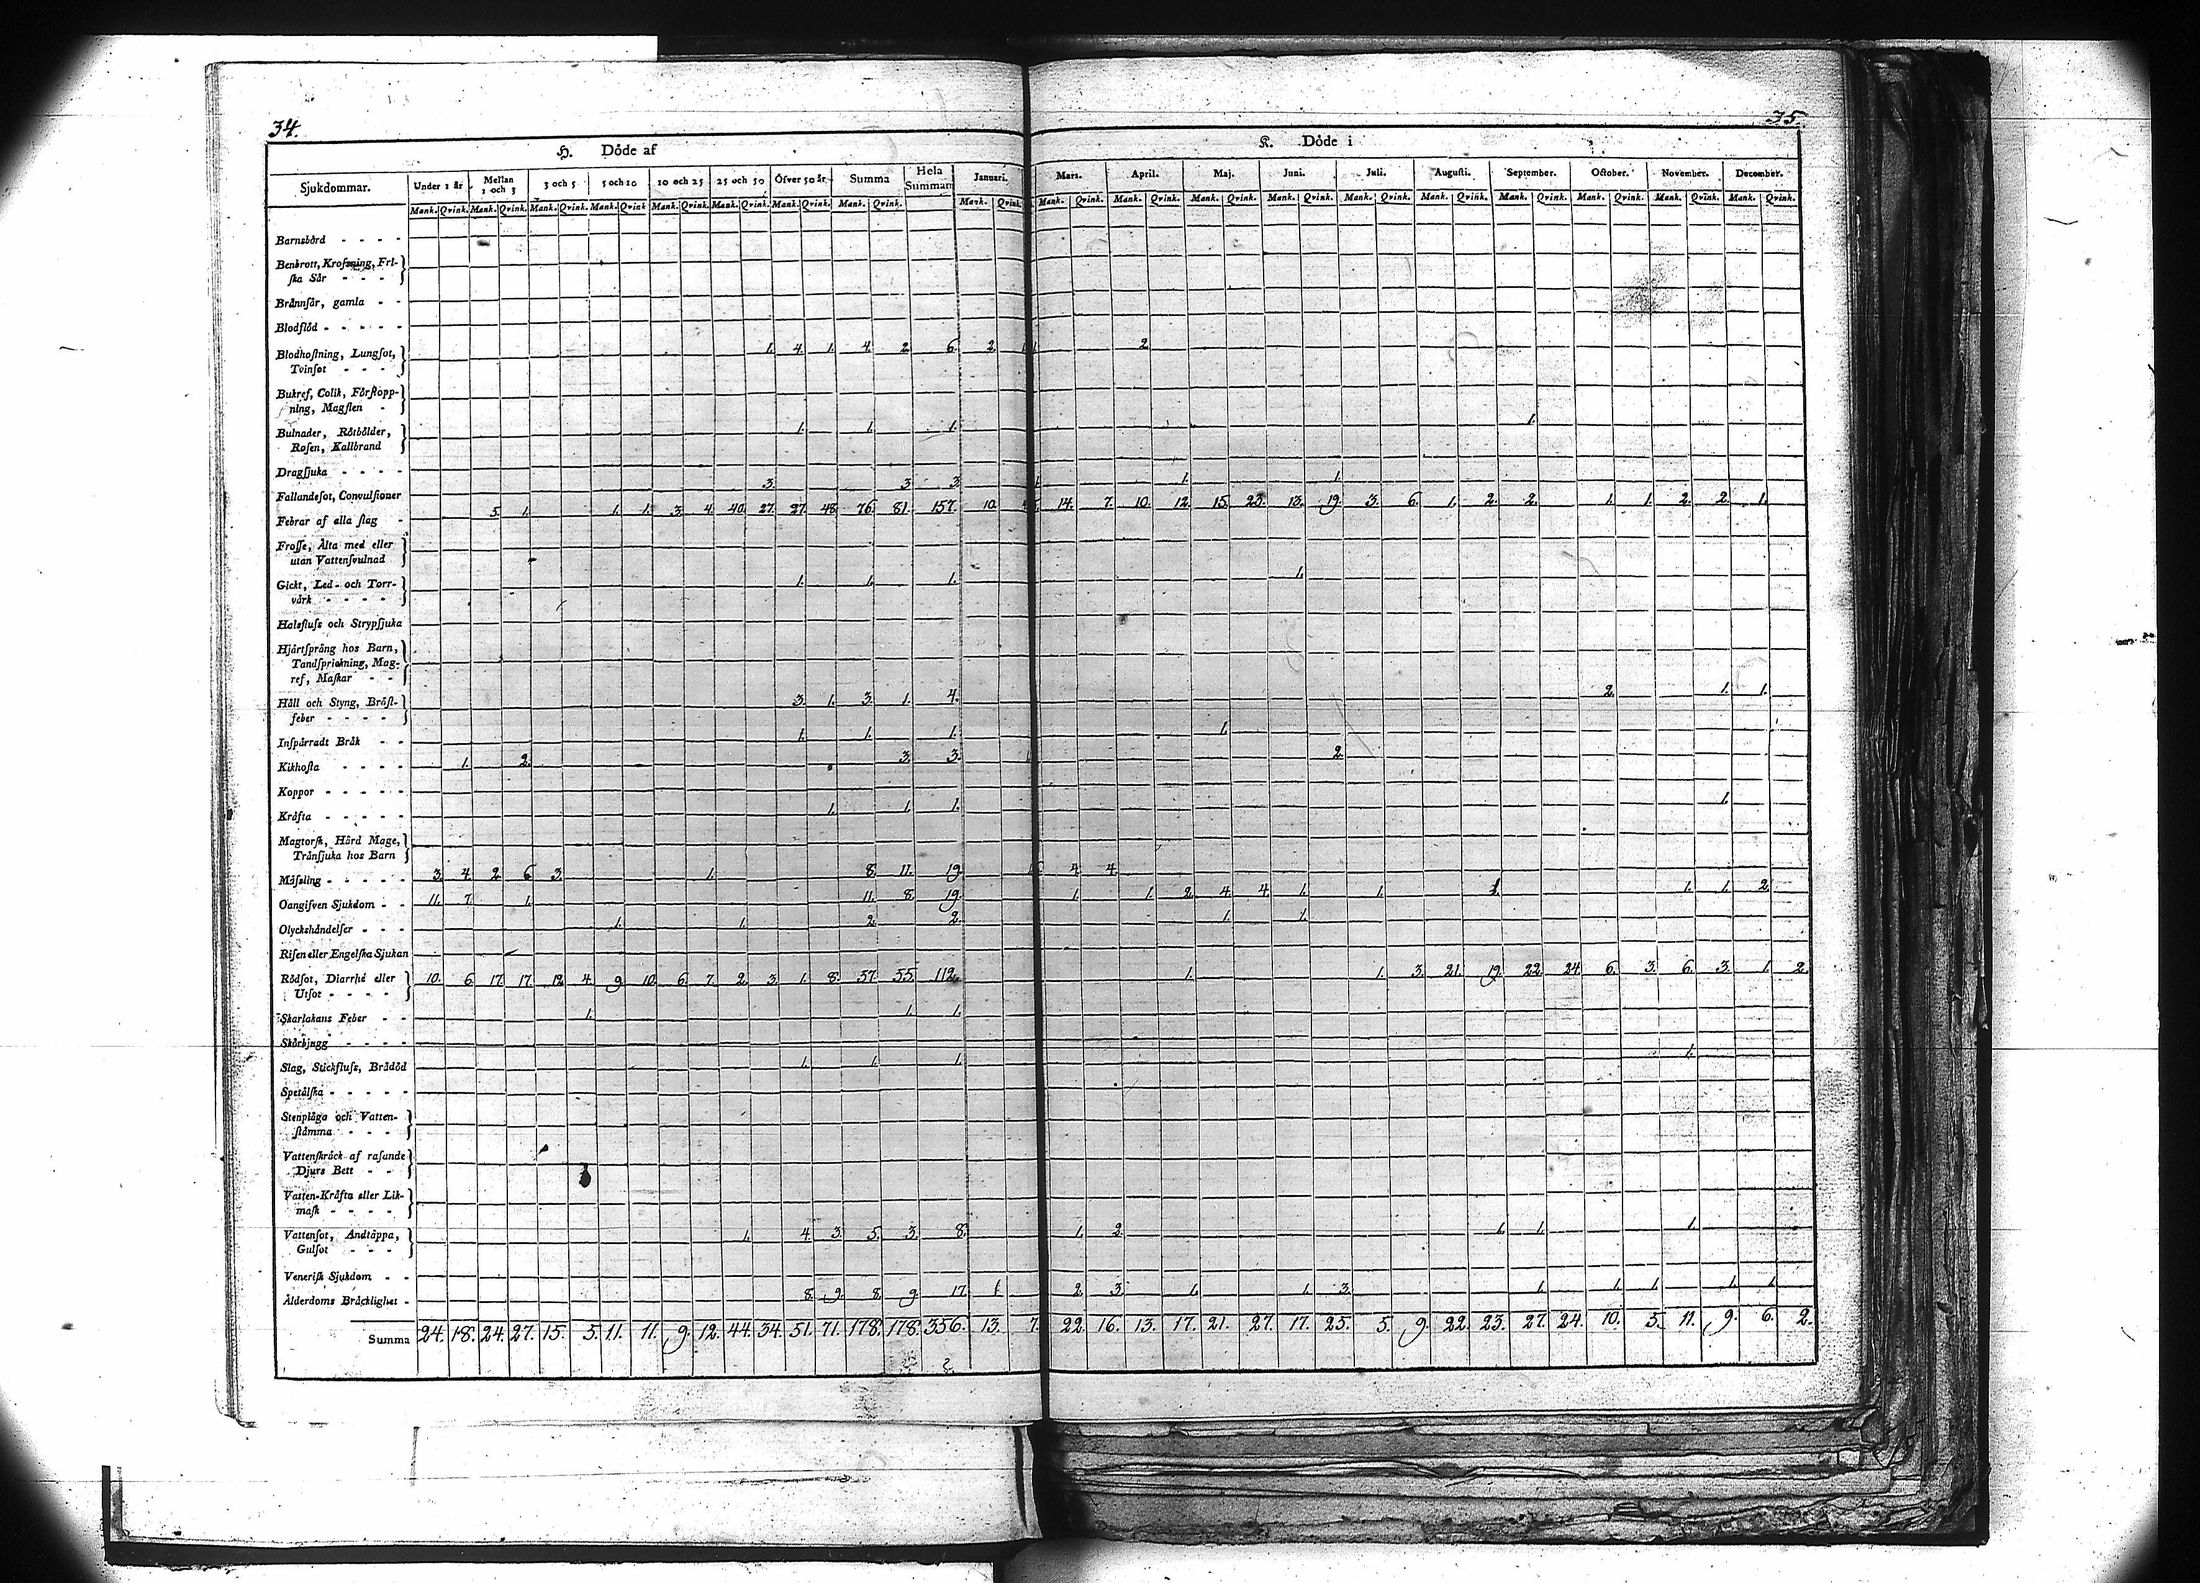 34.
35.
H. Döde af
K. Döde i
Sjukdommar. Under 1 år Mellan 1 och 3 3 och 5 5 och 10 10 och 25 25 och 50 Öfver 50 år Summa Hela Summan Januari. Mars. April. Maj. Juni. Juli. Augusti. September. October. November. December.
Mank. Qvink. Mank. Qvink. Mank. Qvink. Mank. Qvink Mank. Qvink. Mank. Qvink. Mank. Qvink. Mank. Qvink. Mank. Qvink. Mank. Qvink. Mank. Qvink. Mank. Qvink. Mank. Qvink. Mank. Qvink. Mank. Qvink. Mank. Qvink. Mank. Qvink. Mank. Qvink. Mank. Qvink.
Barnsbörd - - - -
Benbrott, Krofsning, Fri-
ska Sår - - -
Brännsår, gamla - -
Blodflöd - - - - -
Blodhostning, Lungsot, 1. 4. 1. 4. 2. 6. 2. 2.
Tvinsot - - -
Bukref, Colik, Förstopp-
ning, Magsten -
Bulnader, Rötbölder, 1. 1. 1. 1.
Rosen, Kallbrand
Dragsjuka - - - -
Fallandesot, Convulsioner 3. 3. 3. 1. 1.
Febrar af alla slag - 5. 1. 1. 1. 3. 4. 40. 27. 27. 48. 76. 81. 157. 10. 14. 7. 10. 12. 15. 23. 13. 19. 3. 6. 1. 2. 2. 1. 1. 2. 2. 1.
Frosse, Älta med eller
utan Vattensvulnad
Gickt, Led- och Torr- 1. 1. 1. 1.
värk - - - -
Halsfluss och Strypsjuka
Hjärtsprång hos Barn,
Tandsprickning, Mag-
ref, Maskar - -
Håll och Styng, Bröst- 3. 1. 3. 1. 4. 2. 1. 1.
feber - - - -
Inspärradt Bråk - - 1. 1. 1. 1.
Kikhosta - - - - 1. 2. 3. 3. 2.
Koppor - - - - -
Kräfta - - - - - 1. 1. 1. 1.
Magtorsk, Hård Mage,
Tränsjuka hos Barn
Mässling - - - - - 3. 4. 2. 6. 3. 1. 8. 11. 19. 4. 4.
Oangifven Sjukdom - - 11. 7. 1. 11. 8. 19. 1. 1. 2. 4. 4. 1. 1. 1. 1. 1. 2.
Olyckshändelser - - - 1. 1. 2. 2. 1. 1.
Risen eller Engelska Sjukan
Rödsot, Diarrhé eller 10. 6. 17. 17. 12. 4. 9. 10. 6. 7. 2. 3. 1. 8. 57. 55. 112. 1. 1. 3. 21. 19. 22. 24. 6. 3. 6. 3. 1. 2.
Utsot - - - -
Skarlakans Feber - - 1. 1. 1.
Skörbjugg - - - -
Slag, Stickfluss, Brådöd 1. 1. 1. 1.
Spetälska - - - - -
Stenplåga och Vatten-
stämma - - -
Vattenskräck af rasande
Djurs Bett - -
Vatten-Kräfta eller Lik-
mask - - - -
Vattensot, Andtäppa, 1. 4. 3. 5. 3. 8. 1. 2. 1. 1. 1.
Gulsot - - -
Venerisk Sjukdom - -
Ålderdoms Bräcklighet - 8. 9. 8. 9. 17. 1. 2. 3. 1. 1. 3. 1. 1. 1. 1. 1.
Summa 24. 18. 24. 27. 15. 5. 11. 11. 9. 12. 44. 34. 51. 71. 178. 178. 356. 13. 7. 22. 16. 13. 17. 21. 27. 17. 25. 5. 9. 22. 23. 27. 24. 10. 5. 11. 9. 6. 2.